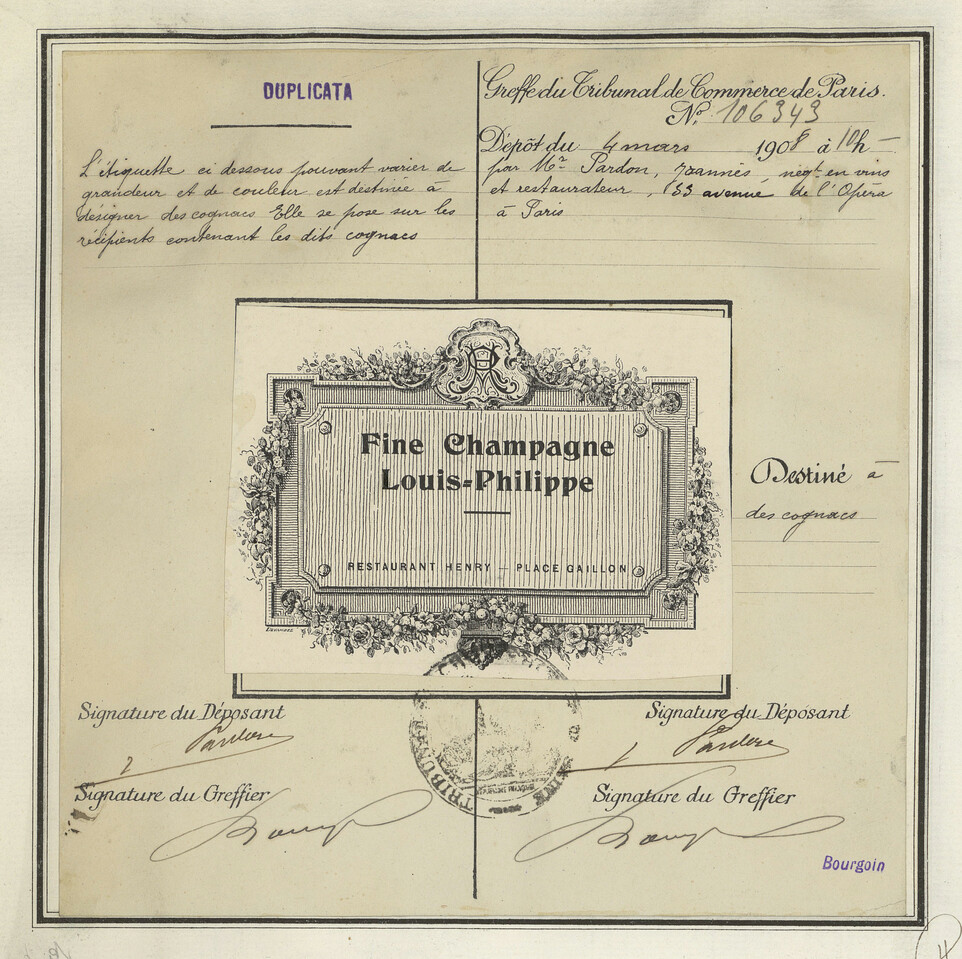 DUPLICATA
L'étiquette ci dessous pouvant varier de
grandeur et de couleur est destinée à
désigner des cognacs Elle se pose sur les
récipients contenant les dits cognacs
Greffe du Tribunal de Commerce de Paris.
N.º 106343
Dépôt du 4 mars 1908 à 10h
par Mr Pardon, Joannès, négt en vins
et restaurateur, 33 avenue de l'Opéra
à Paris
Fine Champagne
Louis-Philippe
RESTAURANT HENRY — PLACE GAILLON
Destiné à
des cognacs
Signature du Déposant
Signature du Greffier
Signature du Déposant
Signature du Greffier
Bourgoin
4